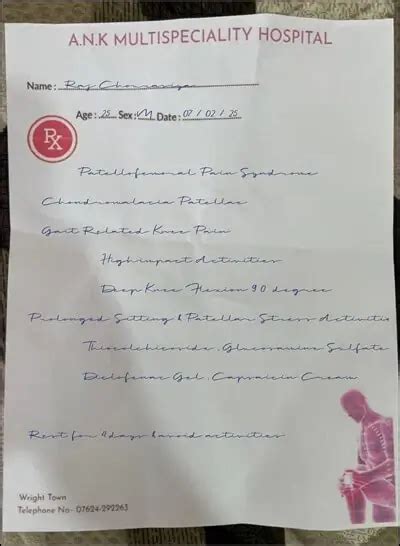 A.N.K MULTISPECIALITY HOSPITAL
Name: Raj
Age: 25 Sex: M Date: 07 / 02 / 25
Rx
Patellofemoral Pain Syndrome
Chondromalacia Patellae
Gait Related Knee Pain
High impact Activities
Deep Knee Flexion 90 degree
Prolonged Sitting & Patellar Stress Activitie
Thiocolchicoside, Glucosamine Sulfate
Diclofenac Gel, Capsaicin Cream
Rest for 4 days & avoid activities
Wright Town
Telephone No- 07624-292263